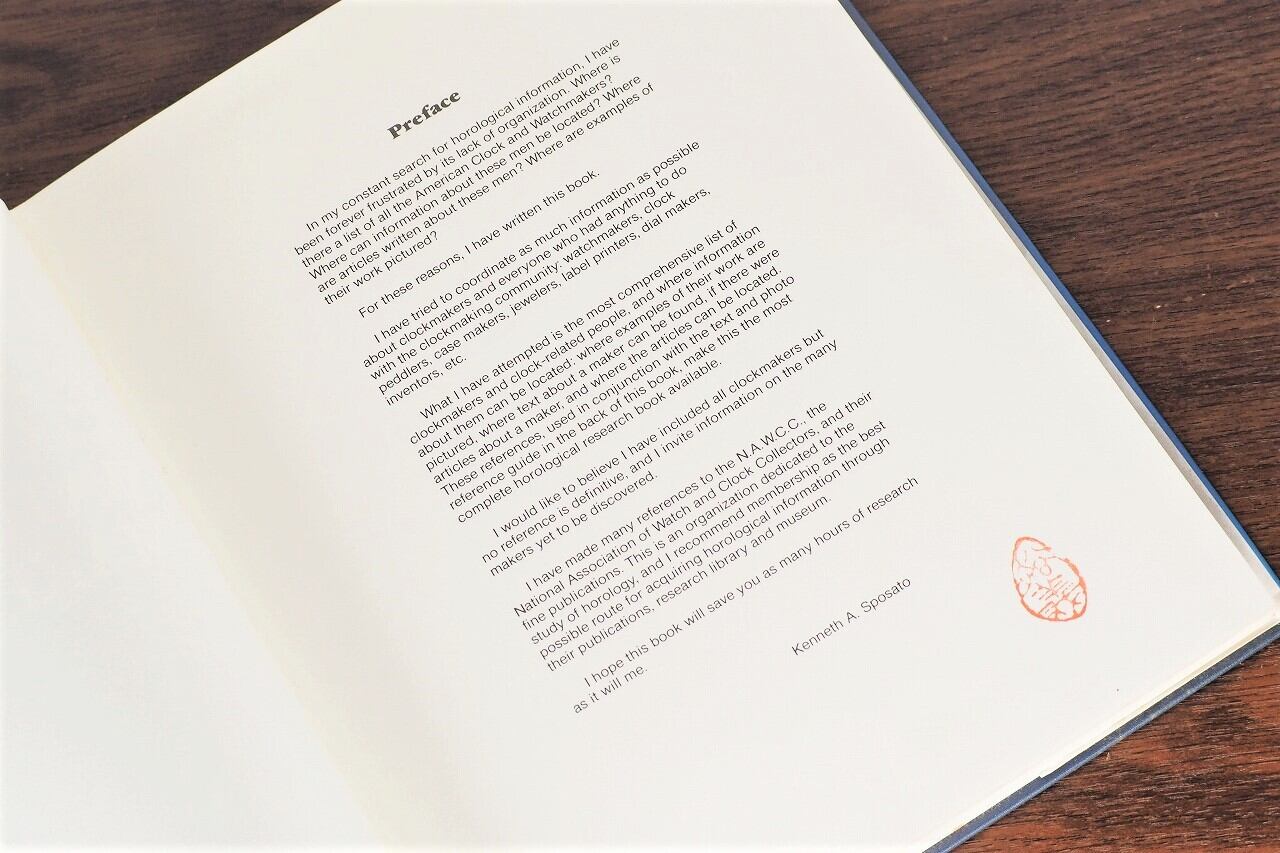 Preface
In my constant search for horological information, I have
been forever frustrated by its lack of organization. Where is
there a list of all the American Clock and Watchmakers?
Where can information about these men be located? Where
are articles written about these men? Where are examples of
their work pictured?
For these reasons, I have written this book.
I have tried to coordinate as much information as possible
about clockmakers and everyone who had anything to do
with the clockmaking community: watchmakers, clock
peddlers, case makers, jewelers, label printers, dial makers,
inventors, etc.
What I have attempted is the most comprehensive list of
clockmakers and clock-related people, and where information
about them can be located; where examples of their work are
pictured, where text about a maker can be found, if there were
articles about a maker, and where the articles can be located.
These references, used in conjunction with the text and photo
reference guide in the back of this book, make this the most
complete horological research book available.
I would like to believe I have included all clockmakers but
no reference is definitive, and I invite information on the many
makers yet to be discovered.
I have made many references to the N.A.W.C.C., the
National Association of Watch and Clock Collectors, and their
fine publications. This is an organization dedicated to the
study of horology, and I recommend membership as the best
possible route for acquiring horological information through
their publications, research library and museum.
I hope this book will save you as many hours of research
as it will me.
Kenneth A. Sposato